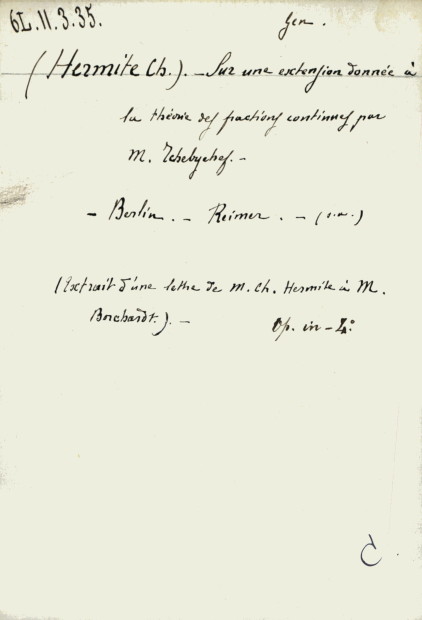 6L.11.3.35.
Gen.
(Hermite Ch.). — Sur une extension donnée à
la théorie des fractions continues par
M. Tchebychef. —
— Berlin. — Reimer. — (s.a.)
(Extrait d'une lettre de M. Ch. Hermite à M.
Borchardt.). —
Op. in-4°
C